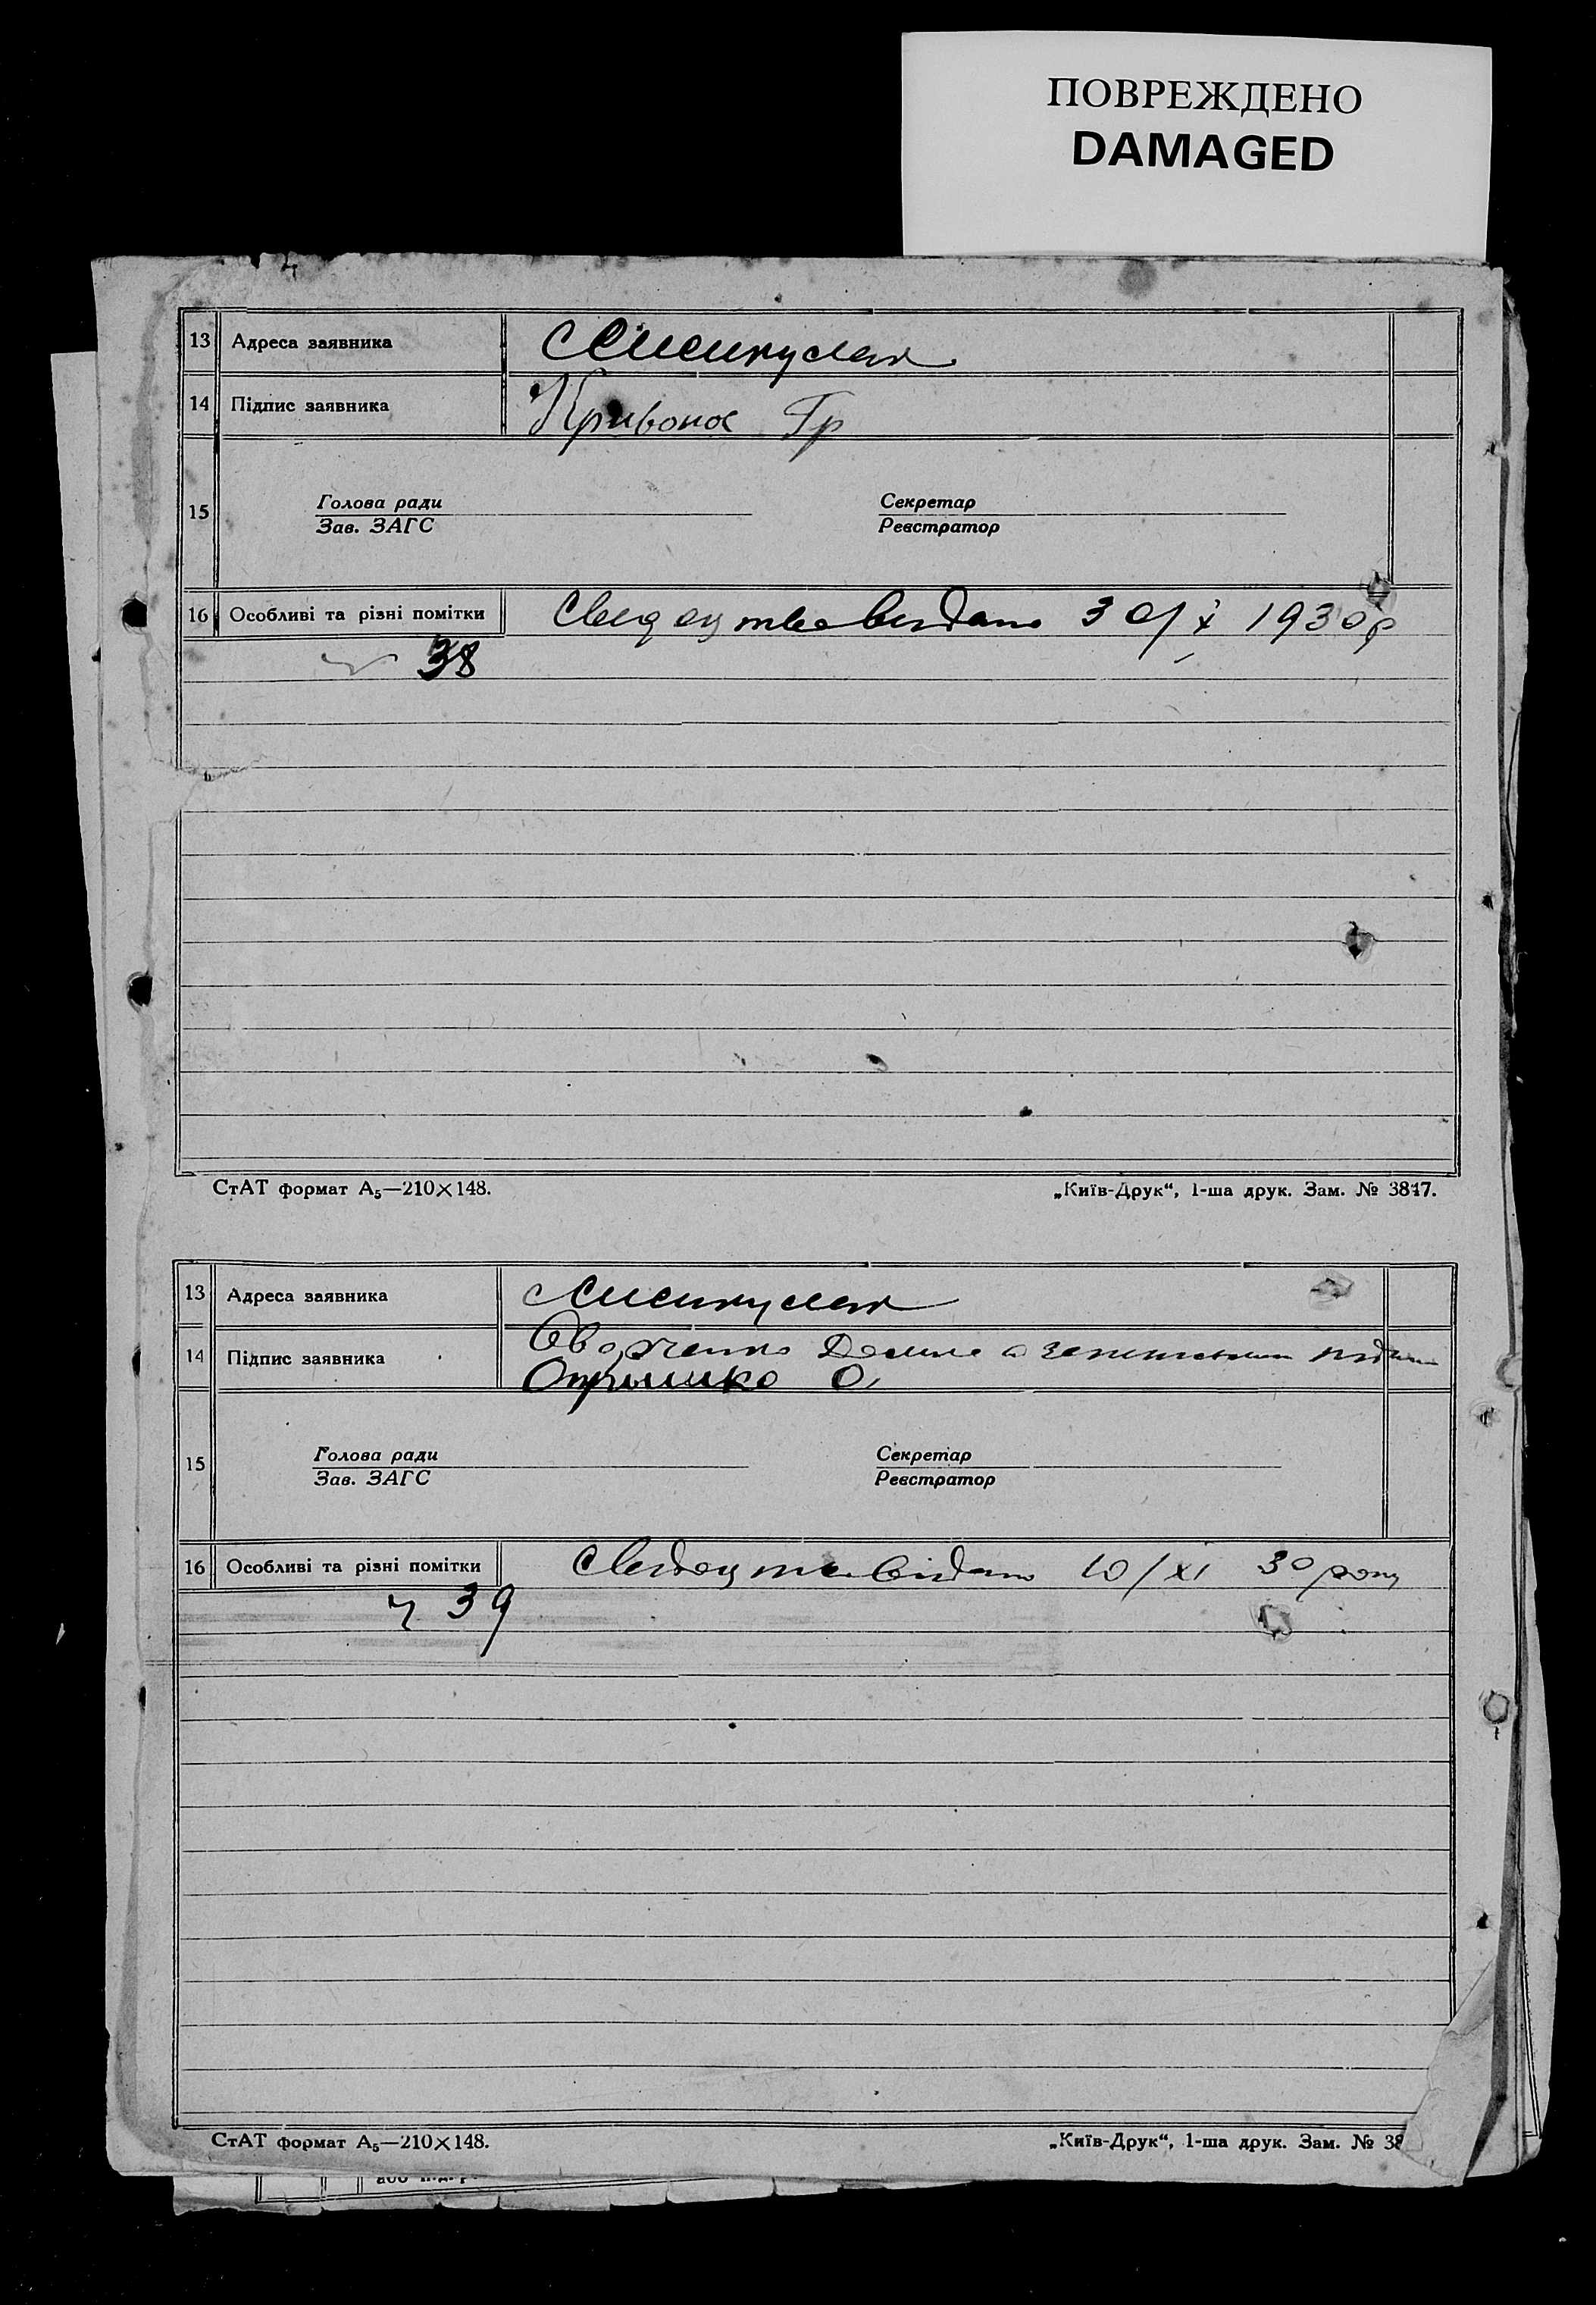 ПОВРЕЖДЕНО
DAMAGED
13 Адреса заявника
14 Підпис заявника Кривонос Гр
15 Голова ради Секретар
Зав. ЗАГС Реєстратор
16 Особливі та різні помітки Свидоцтво видано 30/X 1930р
38
СтАТ формат А₅—210×148. „Київ-Друк“, 1-ша друк. Зам. № 3847.
13 Адреса заявника
14 Підпис заявника
Отришко О
15 Голова ради Секретар
Зав. ЗАГС Реєстратор
16 Особливі та різні помітки Свидоцтво видано 10/XI 30 року
ч 39
СтАТ формат А₅—210×148. „Київ-Друк“, 1-ша друк. Зам. № 38